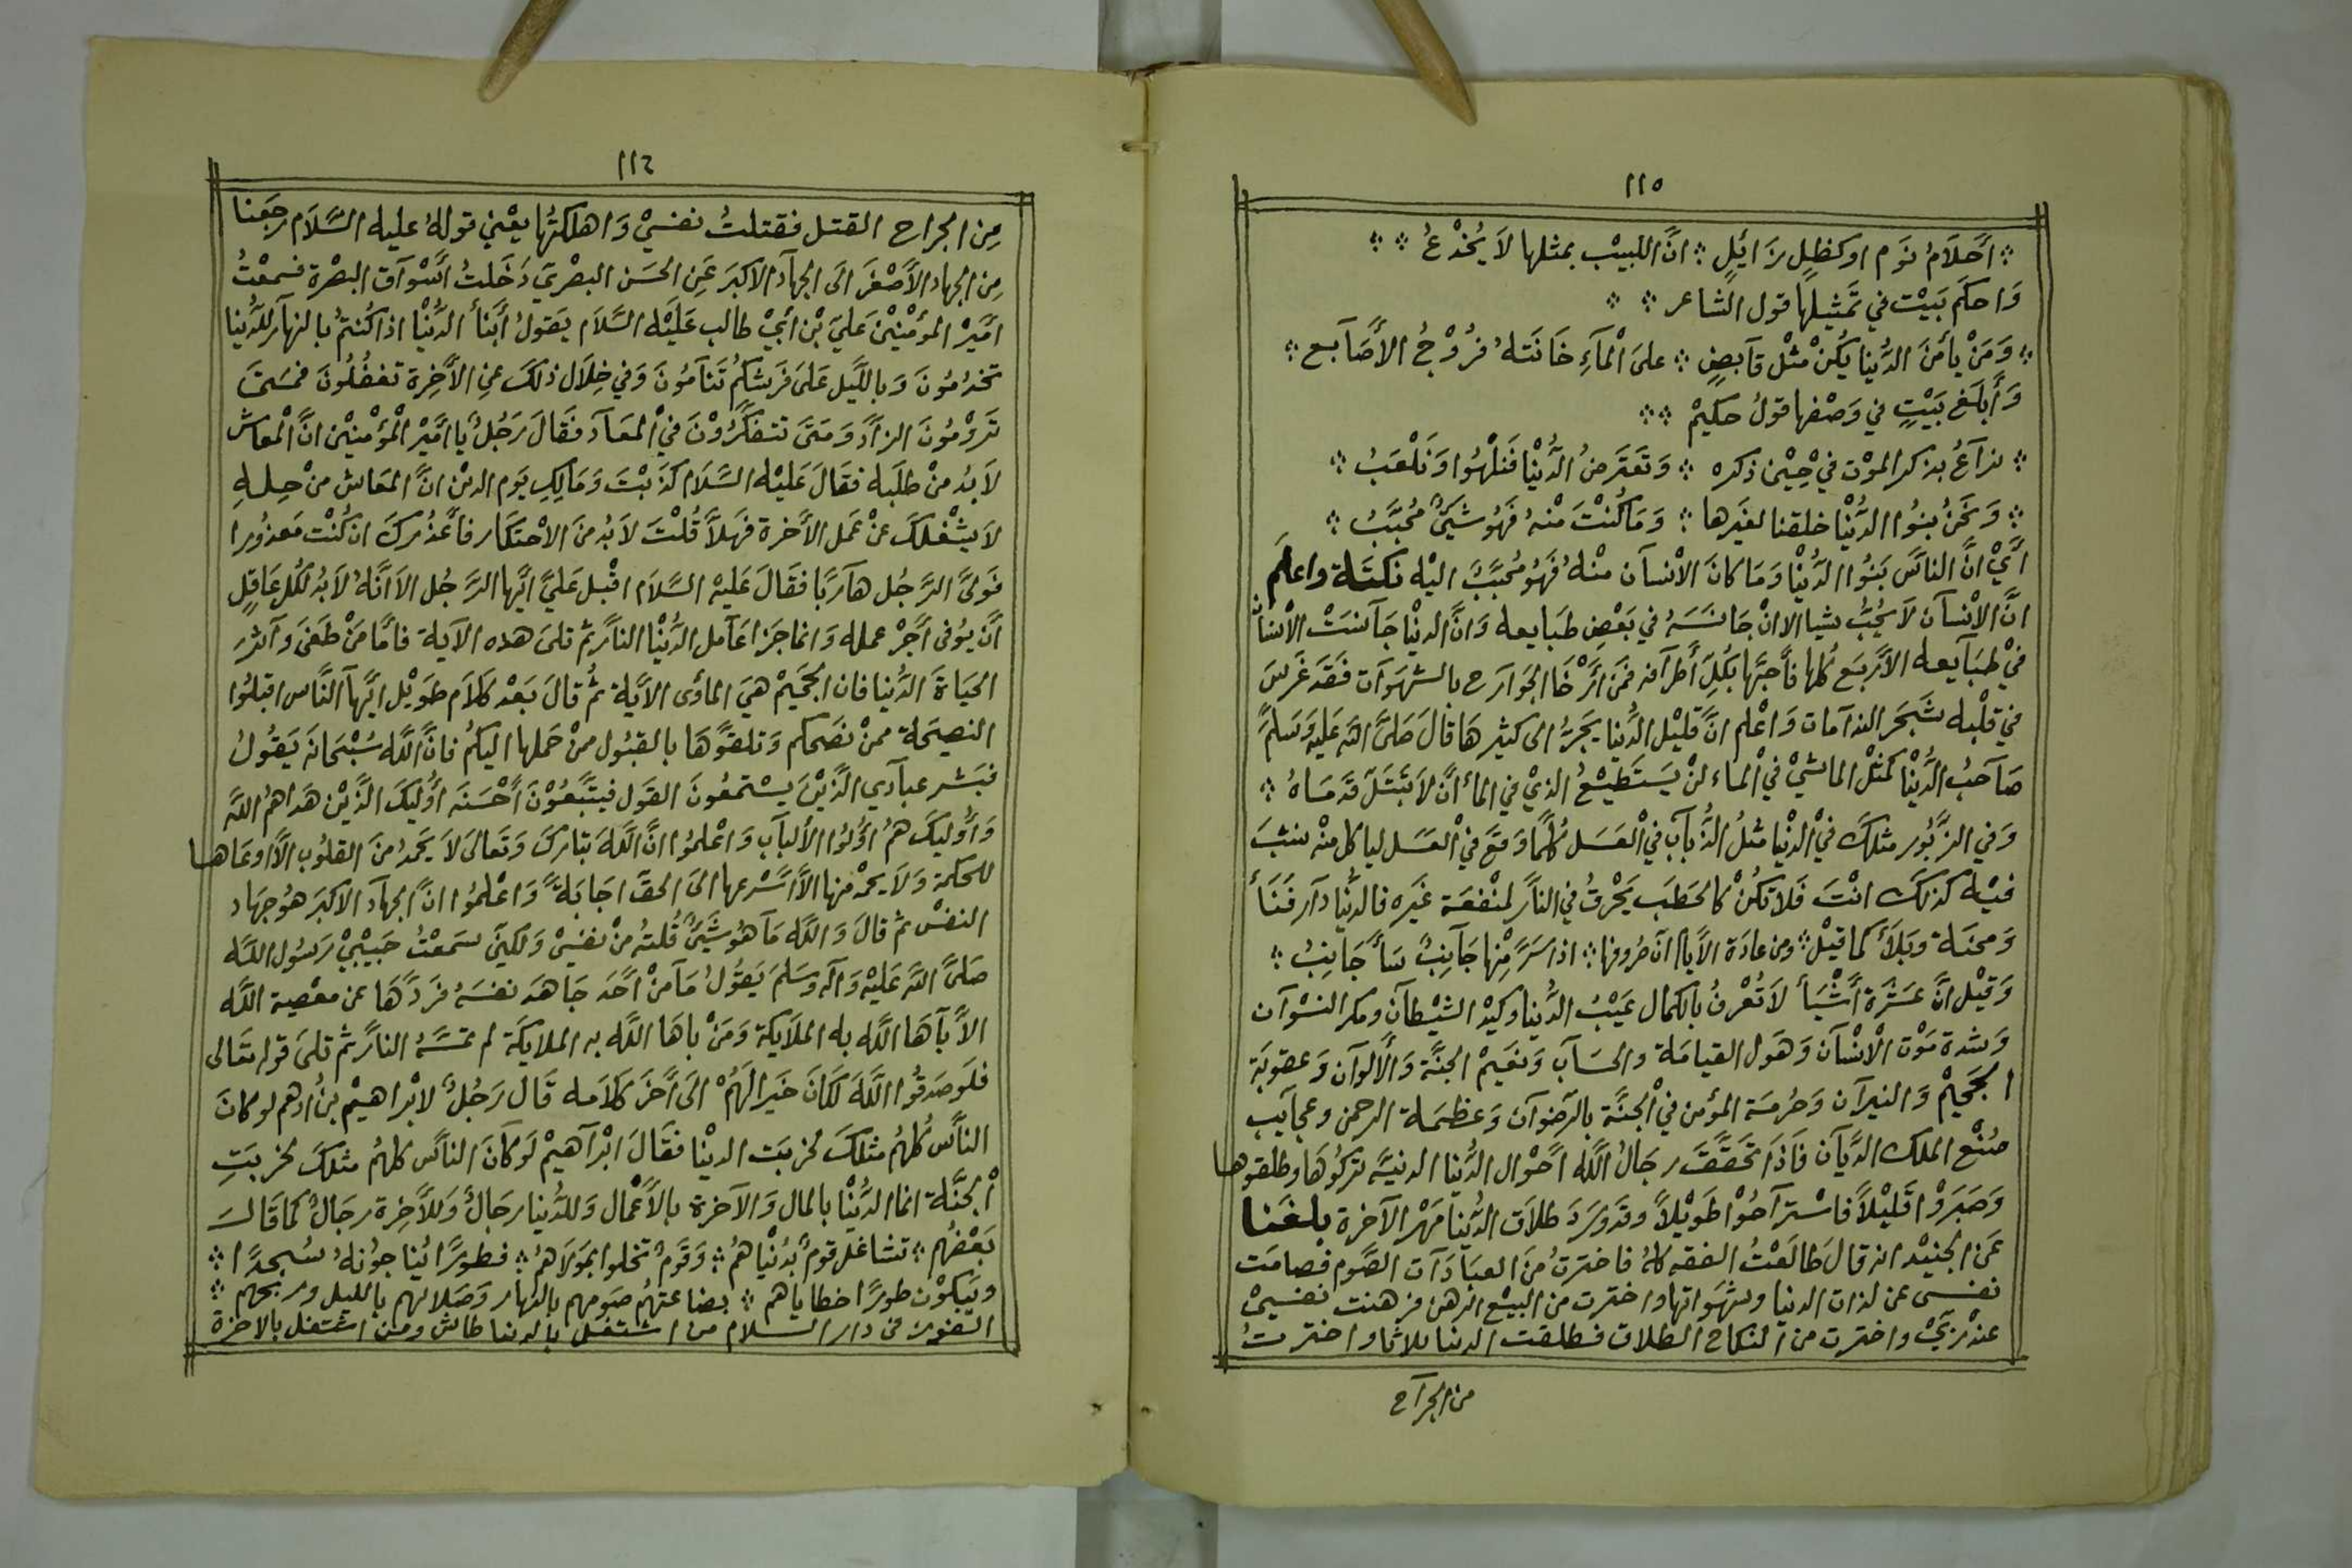 ١١٥
؞ أَحلَامُ نَوم اوكظلٍ زَايلٍ ؞ انَّ اللبيْب بمثلها لاَ يُخْدعُ ؞ ؞
وَاحكَم بَيْت في تَمثيلها قول الشاعر ؞ ؞
؞ وَمَنْ يأمَنَ الدُّينا يكُنْ مثْل قآبضٍ ؞ علىَ الْمآءِ خَانَتهُ فرُوْجُ الأَصَآبع ؞
وَأَبلَغ بَيْتٍ في وَصْفها قولُ حكيمْ ؞ ؞
؞ نرآعُ بذكر الموْت في حِيْن ذكره ؞ وَتعَترَضُ الدُّنْيا فَنلْهُوا وَنلْعَبُ ؞
؞ وَنحَنُ بنوُا الدُّنْيا خلقنا لغَيرها ؞ وَمَا كُنْتَ مْنهُ فَهُو شَيئٌ مُحبَّبُ ؞
أَيْ انَّ الناَّس بَنوُا الدُّنْيا وَمَا كانَ الانْسآن منْهُ فَهُو مُحبَّبٌ اليْه نكتَة واعلَم
انَّ الاِنْسآن لاَ يُحبُّ شيا الا انْ جَانسَهُ في بَعْضِ طبَايعه وَانَّ الدنْيا جَآنسَتْ الاْنسان
فيْ طبَآيعه الأَربَع كُلها فأَحبَّها بكُلِّ أَطرآفه فمَن أَرْخَا الجوَارح بالشهوَآت فقَد غَرسَ
في قلْبه شَجَر الندآمات وَاعْلم انَّ قليْل الدُّنيا يَجرُّ الى كثيْرهَا قالَ صَلىَّ الله عَليْه وَسَلمَّ
صَآحبُ الدُّنْيا كمَثلْ الماشيْ في الْماء لنْ يَسَتَطيْعُ الذيْ في المأ انَّ لا تَبْتَلَّ قدَمَاهُ ؞
وَفي الزبُور مثلكَ في الدنْيا مثلُ الذُبآب في العسَل كُلمَّا وَقعَ في العسَل لياكل منْه نشبَ
فيْه كذلكَ انْتَ فَلا تكُنْ كالحَطب يحَرْقُ في الناَّر لمْنفعَة غَيره فالدُّنيا دآر فَنَأ
وَمحنَة وَبلأَ كما قيْل ؞ ومن عادَة الأَيام انّ صُروفها ؞ اذا سَرَّ مِنْها جَآنبٌ سَأَ جَانِبُ ؞
وَقيْل انَّ عشَرَة أَشْيَأ لاَ تُعْرفُ بالكمال عَيْبُ الدُّنيا وكيْد الشيْطآن ومكر النسْوآن
وَشدة مَوْت الاْنسْآن وَهَول القيامَة والحسَآب وَنعَيمْ الجنَّة وَالأَلوآن وَعقوبَة
الجَحَيْم وَالنيرآن وَحُرمَة المؤمن في الجنَّة بالرضوآن وَعظمَة الرحمن وعجآيب
صُنْع الملك الدَّيآن فَاذَا تحَقَّقَ رجَالُ الله أَحْوال الدُّنيا الدنيَّه تركُوْهَا وطلقوها
وَصَبَروْا قَليْلاً فاسْترآحُوْا طَويْلاً وقدْ وَردَ طلاَق الدُّينا مَهْر الآخرة بلغَنا
عَن الجنيْد انه قالَ طالَعْتُ الفقه كلهُ فاخترتُ منَ العبَادَآت الصَّوم فصامَت
نفسي عن لذات الدنيا وشهَواتها واخترت من البيْع الرهن فرهنت نفسيْ
عنْد رَبيْ واخترت من النكاح الطلاق فطلقت الدنيا ثلاثا واخترتُ
من الجرآح
١١٦
مِن الجراح القتل فقتلتُ نفسيْ وَاهلكتُها يعْني قولهُ عليه السَّلاَم رجَعنا
مِن الجهاد الأَصْغَر الىَ الجهآد الاكبرَ عَنِ الحسَن البصْريّ دَخَلتُ أَسْوآق البصْرة فسمعْتُ
امَّيرْ المؤمْنيْن عَليّ بْن أبيْ طالب عَليْه السَّلاَم يَقولُ أَبنأَ الدُّنْيا اذا كُنتُمْ بالنهآر للدُّينا
تخدُمُونَ وَباللَّيل عَلىَ فرَشكمُ تنَآمُونَ وَفي خِلاَل ذلكَ عنِ الأَخِرة تغفُلُونَ فمَتىَ
تَرْومُونَ الزآدَ وَمَتىَ تتفكَّرُوْنَ فيْ المعَآد فَقَالَ رَجُلٌ يا امَّيرْ المؤْمنيْن انَّ المْعَاش
لاَ بدُ منْ طلَبه فقَالَ عَليْه السَّلاَم كذَبْتَ وَمَالِكِ يَوم الديْن انَّ المعَاش منْ حِله
لاَ يشْغلكَ عنْ عَمل الأَخرة فَهلاَّ قُلْتَ لاَ بدُ منَ الاحْتكَار فأَعذُركَ ان كُنْت مَعذُورا
فَولىَّ الرَّجُل هآربًا فقَالَ عَليْه السَّلاَم اقْبل عَليَّ ايُّها الرَّجُل الاَ انَّهُ لاَ بدُ لكُل عَاقلٍ
أَن يُوفى أَجْر عمله وَانما جَزا عَآمل الدُّنْيا الناَّر ثم تلىَ هذه الآية فامَّا مَنْ طغىَ وآثرَ
الحيَاة الدُّنيا فان الجَحَيمْ هيَ المأوَى الأَيَة ثمُ قالَ بَعْد كلاَم طَويْل ايُّها النَّاس اقبلُوا
النصيحَة ممنْ نصَحكم وَتلقوَّهَا بالقبُول ممنْ حَملها اليكمُ فانَّ الله سُبْحَانه يَقُولُ
فبَشر عبآدي الَّذيْنَ يسْتمعُونَ القَول فيتَّبعُوْنَ أَحْسَنَه أُوليَكَ الذَّيْن هَداهمُ الله
وَأُوليكَ همُ أوُلوُا الأَلبآب وَاعْلمُوا انَّ اللَّه تبَاركَ وَتعَالىَ لاَ يَحمدُ منَ القلوُب الاَّ اوعَاها
للحكمَة وَلاَ يحمْد منها الاَّ أَسْرعها الىَ الحقّ اجَابَةً وَاعْلمُوا انَّ الجهآد الاكبرَ هُو جهَاد
النفسْ ثم قالَ وَاللَّه مَا هُو شَيئٌ قُلتهُ منْ نفسيْ وَلكنيّ سَمعْتُ حَبيْبيْ رَسُول الله
صَلىَّ الله عَليْه وَآله وسَلمَ يَقوُلُ مَآ منْ أَحَد جَاهَدَ نفسَهُ فَردَّهَا عن معْصية الله
الاَّ بآهَا اللَّه به الملاَيكة وَمَنْ باهَا الله به الملايكَة لم تمسَّهُ الناَّر ثم تلىَ قوله تعَالى
فلَو صَدقُوا اللَّهَ لكَانَ خَيرا لَهُمْ الىَ أَخَر كلاَمه قَالَ رَجُلٌ لابْراهيْم بنُ ادهم لو كانَ
الناَّس كُلهُم مثلكَ لخربَت الدنْيا فقَالَ ابْرآهيْم لَو كآنَ الناَّس كلهُم مثلكَ لخربَتِ
الْجنَّة انما الدُّنْيا بالمال وَالآخرة بالأَعْمال وَللدُّينا رجَالٌ وَللأَخِرة رجَالٌ كما قَالَ
بَعْضُهم ؞ تشاغل قومٌ بدُنْياهُم ؞ وَقَومٌ تخلوا بمَولاَهُم ؞ فطورًا يُنا جوُنهُ سُجدًا ؞
ويَبكوْن طورًا خطاياهم ؞ بضاعتهُم صَومهم بالنهَار وَصَلاتهم بالليل وربحهم ؞
الفوز في دار السلام من اشتغل بالدنيا طاش ومن اشتغل بالاخرة